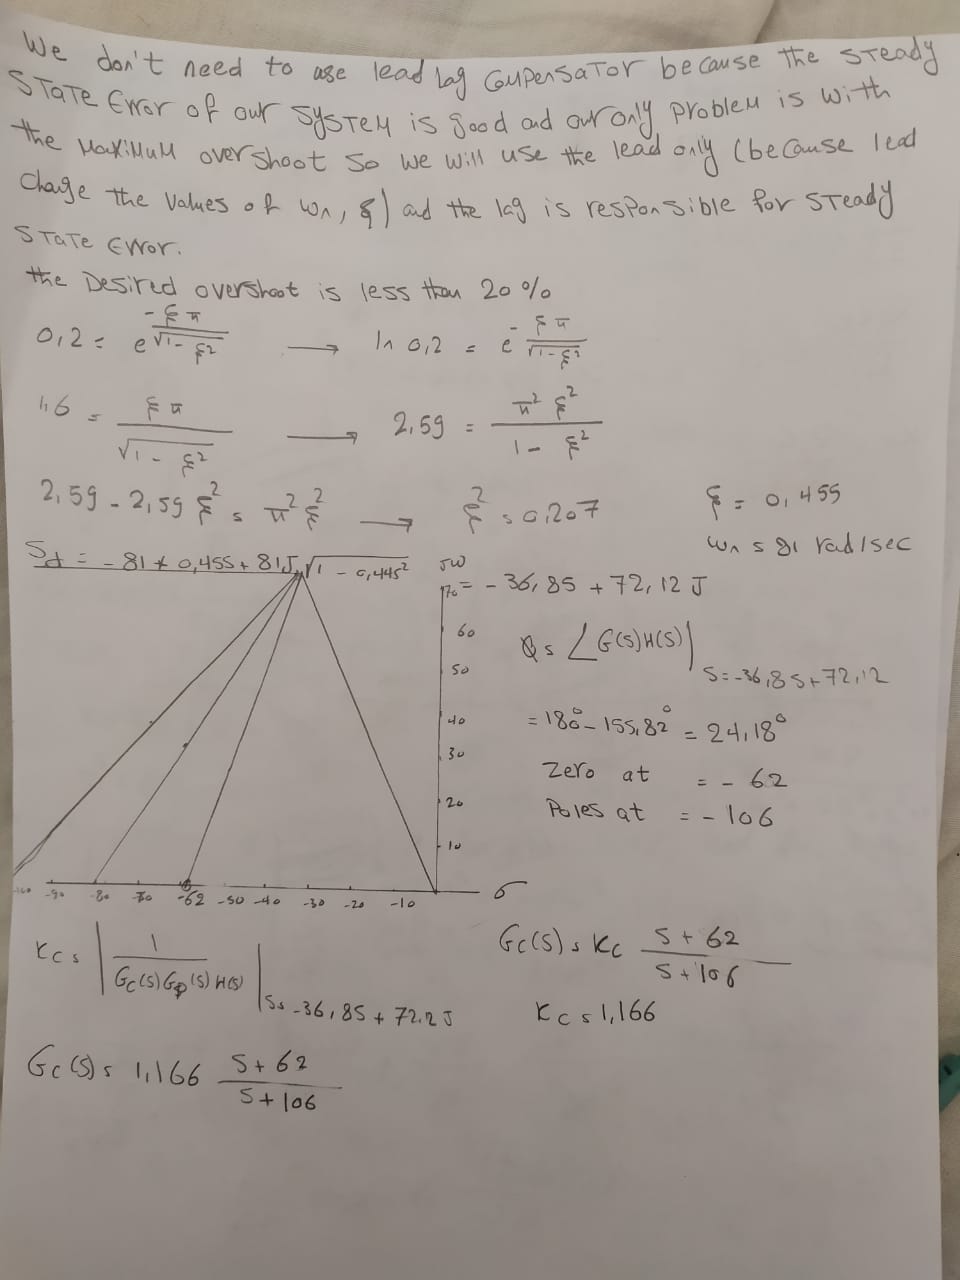 We don't need to use lead lag compensator because the steady
state error of our system is good and our only problem is with
the maximum overshoot so we will use the lead only (because lead
change the values of ωn, ξ) and the lag is responsible for steady
state error.
the Desired overshoot is less than 20 %
0,2 = e^(-ξπ/√(1-ξ²)) → ln 0,2 = e^(-ξπ/√(1-ξ²))
1,6 = ξπ/√(1-ξ²) → 2,59 = π²ξ²/(1-ξ²)
2,59 - 2,59 ξ² = π² ξ² → ξ² = 0,207
ξ = 0,455
ωn = 81 rad/sec
Sd = -81 * 0,455 + 81J √(1 - 0,445²)
= -36,85 + 72,12 J
jω
70
60
50
40
30
20
10
-100 -90 -80 -70 -62 -50 -40 -30 -20 -10
σ
= ∠G(s)H(s)| s=-36,85+72,12
= 180° - 155,82° = 24,18°
Zero at = - 62
Poles at = - 106
Kc = |1/(Gc(s)Gp(s)H(s))| s=-36,85 + 72.2J
Gc(s) = Kc (s + 62)/(s + 106)
Kc = 1,166
Gc(s) = 1,166 (s + 62)/(s + 106)